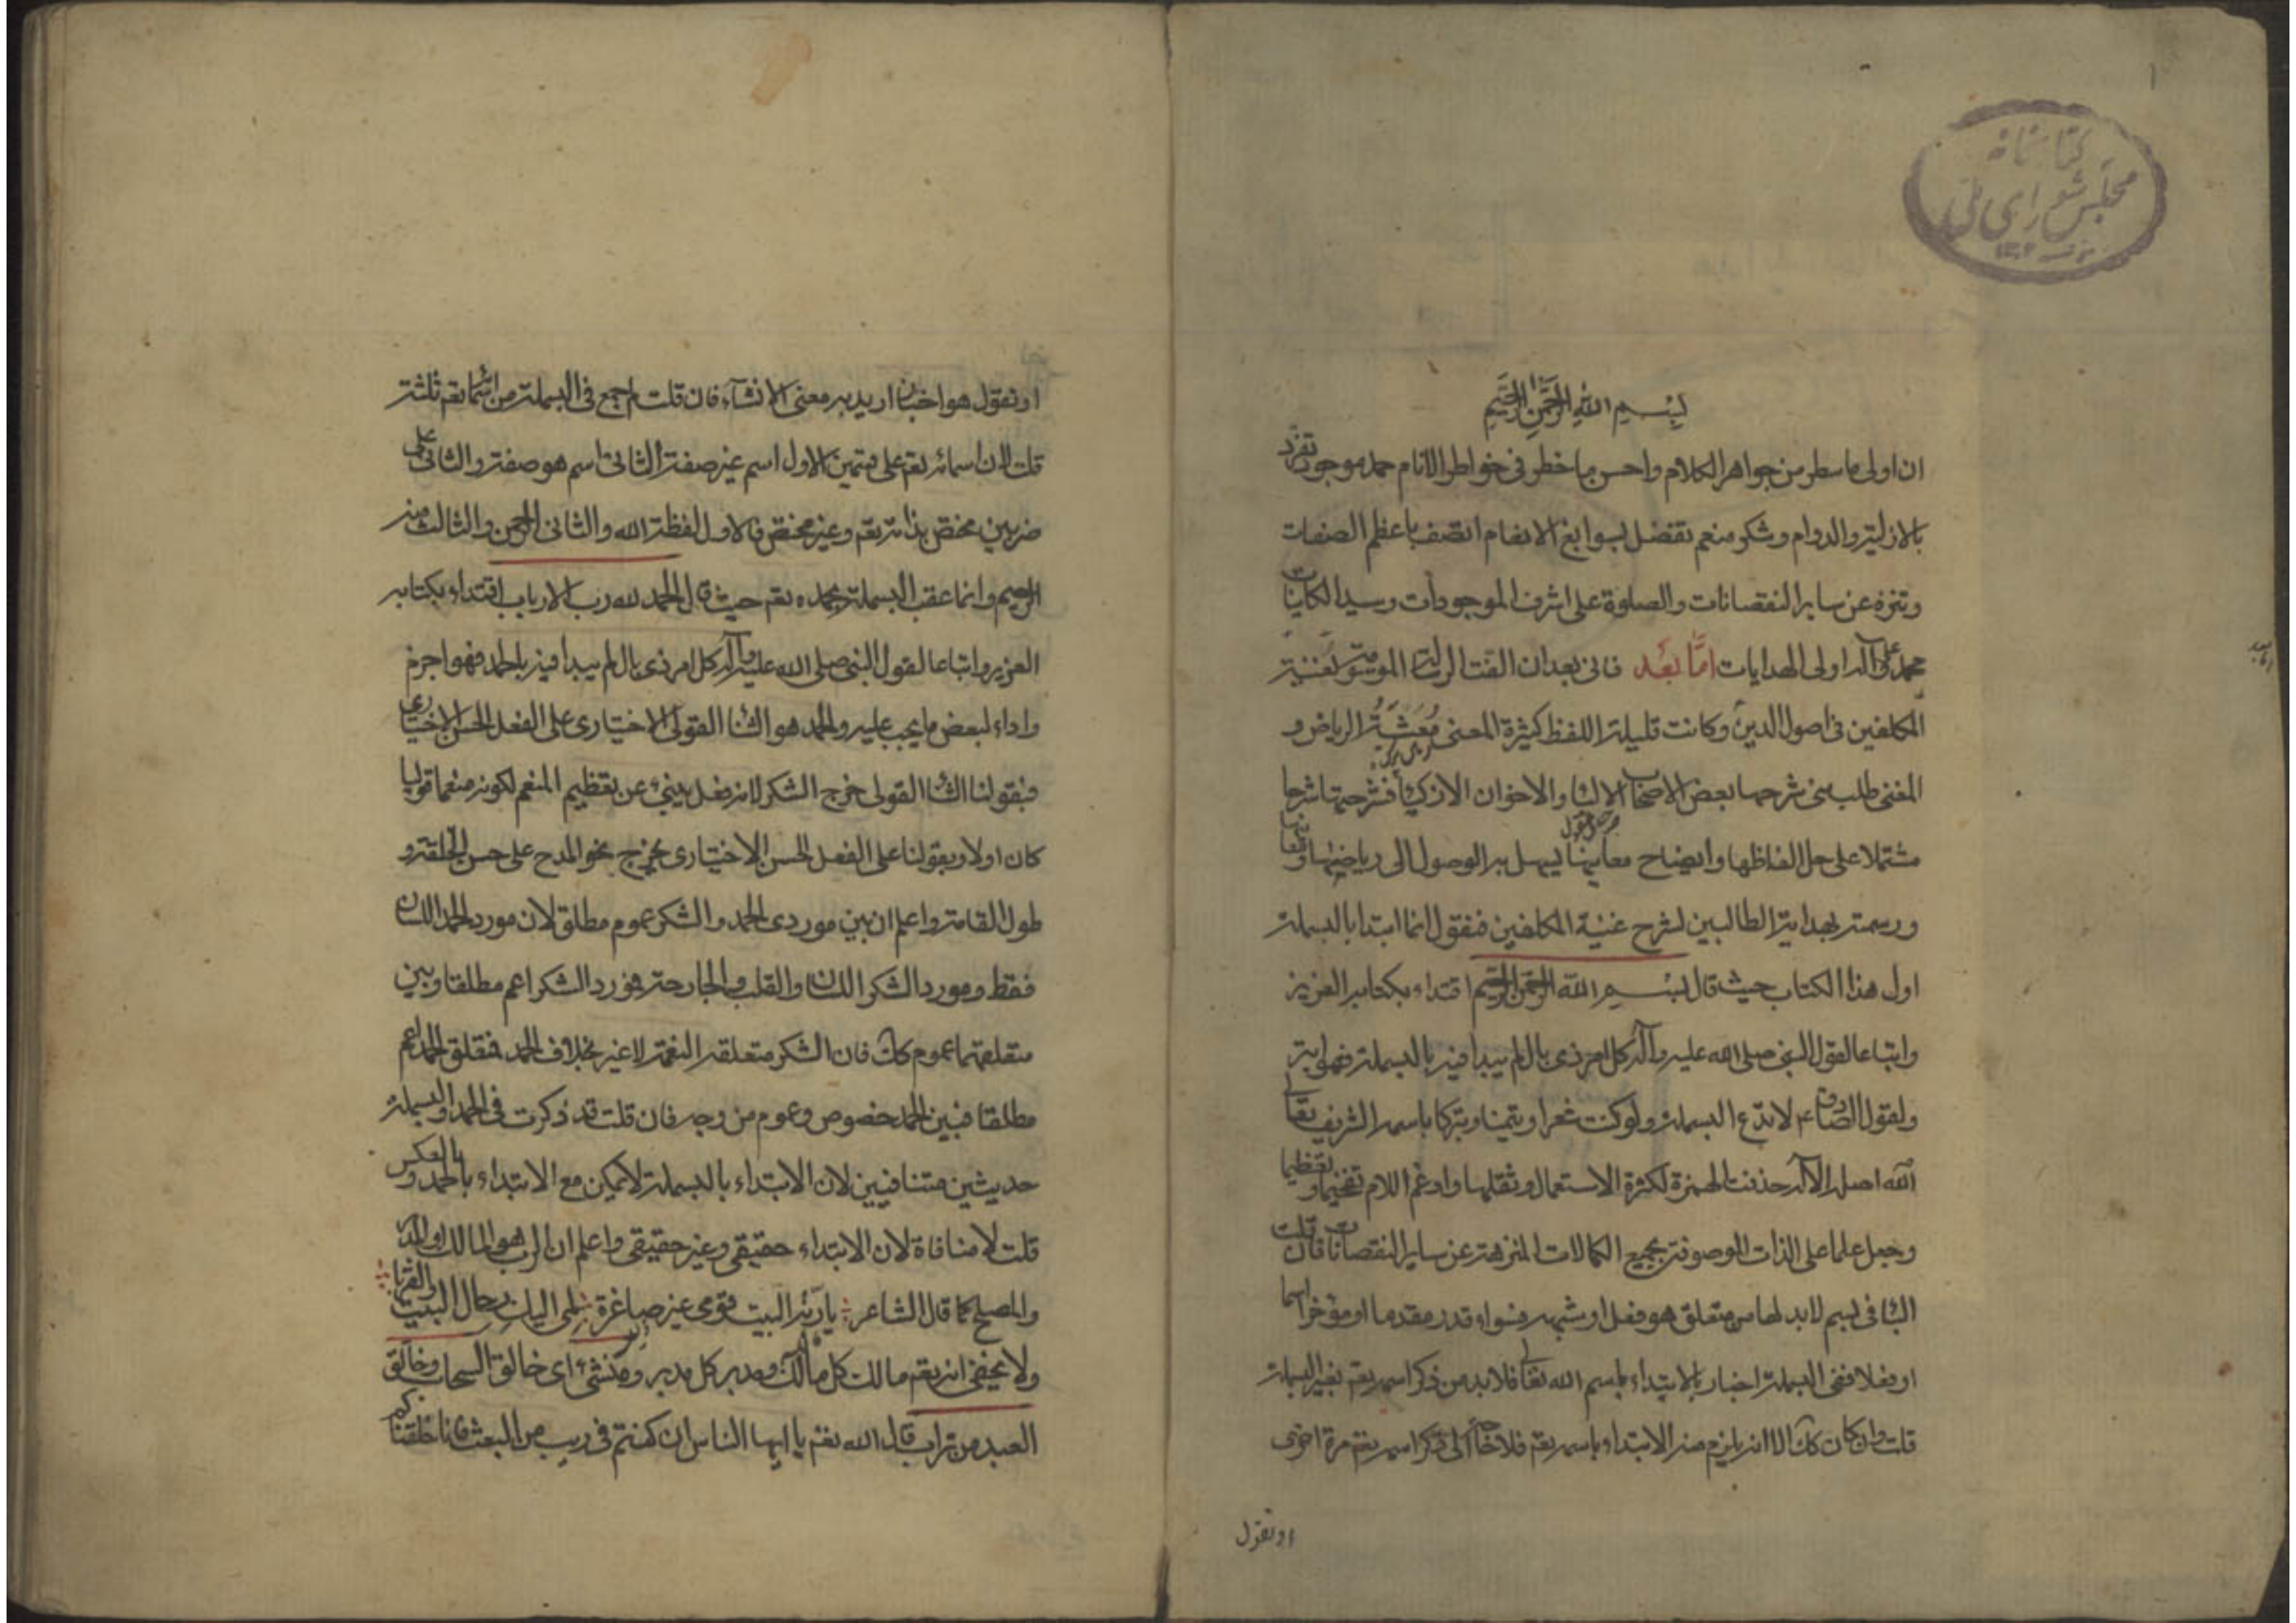 كتابخانه
مجلس شورای ملی
بسم الله الرحمن الرحيم
ان اولى ما سطر من جواهر الكلام واحسن ما خطر فى خواطر الانام حمد موجود تفرد
بالازلية والدوام وشكر منعم تفضل بسوابغ الانعام اتصف باعظم الصفات
وتنزه عن ساير النقصانات والصلوة على اشرف الموجودات وسيد الكاينات
محمد وعلى آله اولى الهدايات اما بعد فانى بعد ان الفت الرسالة الموسومة بغنية
المكلفين فى اصول الدين وكانت قليلة اللفظ كثيرة المعنى الرياض و
المغنى طلب منى شرحها بعض الاصحاب الالباء والاخوان الازكياء فشرحتها شرحا
مشتملا على حل الفاظها وايضاح معانيها يسهل به الوصول الى رياضها
ورسمته بهداية الطالبين لشرح غنية المكلفين فنقول انما ابتدا بالبسملة
اول هذا الكتاب حيث قال بسم الله الرحمن الرحيم اقتداء بكتابه العزيز
واتباعا لقول النبى صلى الله عليه وآله كل امر ذى بال لم يبدا فيه بالبسملة فهو ابتر
ولقول الصادق ع لا تدع البسملة ولو كتبت شعرا وتيمنا وتبركا باسمه الشريف تعالى
الله اصله الآله حذفت الهمزة لكثرة الاستعمال وثقلها وادغم اللام تفخيما وتعظيما
وجعل علما على الذات الموصوفة بجميع الكمالات المنزهة عن ساير النقصانات فان قلت
البا فى بسم لا بد لها من متعلق هو فعل او شبهه سواء قدر مقدما او مؤخرا اسما
او فعلا ففى البسملة اخبار بالابتداء باسم الله تعالى فلا بد من ذكر اسمه تعم بغير البسملة
قلت وان كان كك الا انه يلزم منه الابتداء باسمه تعم فلا حاجة الى ذكر اسمه تعم مرة اخرى
او نقول
او نقول هو اخبار اريد به معنى الانشآء فان قلت لم جمع فى البسملة من اسمائه تعم ثلثة
قلت لان اسمائه تعم على قسمين الاول اسم غير صفة الثانى اسم هو صفة والثانى على
ضربين مختص بذاته تعم وغير مختص فالاول لفظة الله والثانى الرحمن والثالث منه
الرحيم وانما عقب البسملة بحمده تعم حيث قال الحمد لله رب الارباب اقتداء بكتابه
العزيز واتباعا لقول النبى صلى الله عليه وآله كل امر ذى بال لم يبدا فيه بالحمد فهو اجذم
واداء لبعض ما يجب عليه والحمد هو الثنا القولى الاختيارى على الفعل الحسن الاختيارى
فبقولنا الثنا القولى خرج الشكر لانه فعل ينبىء عن تعظيم المنعم لكونه منعما قوليا
كان اولا وبقولنا على الفعل الحسن الاختيارى يخرج نحو المدح على حسن الخلقة و
طول القامة واعلم ان بين موردى الحمد والشكر عموم مطلق لان مورد الحمد اللسان
فقط ومورد الشكر اللسان والقلب والجارحة فمورد الشكر اعم مطلقا وبين
متعلقهما عموم كك فان الشكر متعلقه النعمة لا غير بخلاف الحمد فتعلق الحمد اعم
مطلقا فبين الحمد خصوص وعموم من وجه فان قلت قد ذكرت فى الحمد والبسملة
حديثين متنافيين لان الابتداء بالبسملة لا يمكن مع الابتداء بالحمد وبالعكس
قلت لا منافاة لان الابتداء حقيقى وغير حقيقى واعلم ان الرب هو المالك
والمصلح كما قال الشاعر يا ربة البيت قومى غير صاغرة ضمى اليك رحال البيت والقربا
ولا يخفى انه تعم مالك كل مالك ومدبر كل مدبر ومنشىء اى خالق السحاب وخالق
العبد من تراب قال الله تعم يا ايها الناس ان كنتم فى ريب من البعث فانا خلقناكم